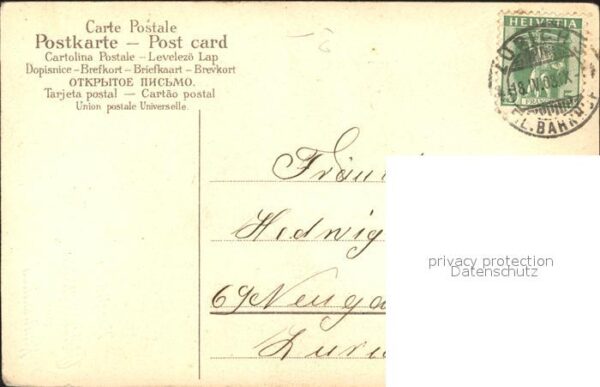 Carte Postale
Postkarte – Post card
Cartolina Postale – Levelezö Lap
Dopisnice – Brefkort – Briefkaart – Brevkort
ОТКРЫТОЕ ПИСЬМО.
Tarjeta postal – Cartão postal
Union postale Universelle.
HELVETIA
Fräu
Hedwig
69 Neuga
privacy protection
Datenschutz